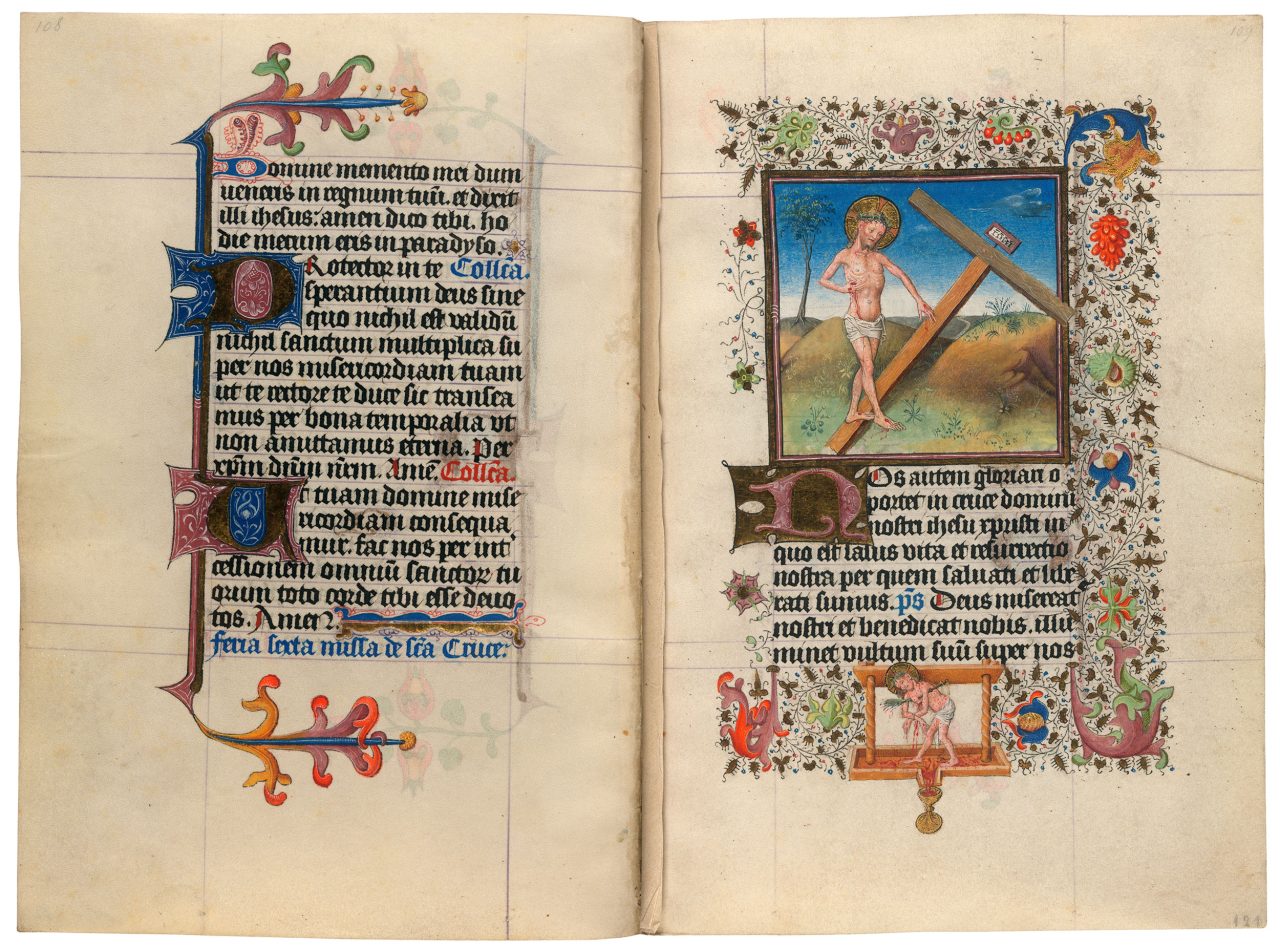 108
Domine memento mei dum
veneris in regnum tuū. et dixit
illi ihesus: amen dico tibi. ho
die mecum eris in paradyso.
Rotector in te Collc̄a.
sperantium deus sine
quo nichil est validū
nichil sanctum multiplica su
per nos misericordiam tuam
ut te rectore te duce sic transea
mus per bona temporalia vt
non amittamus eterna. Per
xp̄m dn̄m nr̄m. Amē. Collc̄a.
Et tuam domine mise
ricordiam consequa
mur. fac nos per int
cessionem omniū sanctorꝝ tu
orum toto corde tibi esse devo
tos. Amen.
feria sexta missa de sc̄a Cruce:
109
NOs autem gloriari o
portet in cruce domini
nostri ihesu xpristi in
quo est salus vita et resurrectio
nostra per quem saluati et libe
rati sumus. p̄s Deus misereat᷑
nostri et benedicat nobis. illu
minet vultum suū super nos
121